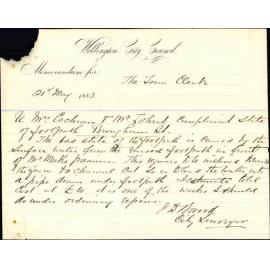 Wellington City Council.
Memorandum for
The Town Clerk
21st May 1883
Re Mrs Cochran & Mr complaint state
of footpath Brougham St.
The bad state of the footpath is caused by the
surface water from the raised footpath in front
of Mr premises. This requires to be
the and a Channel Cut so as to lead the water into
a pipe down under footpath & Street total
cost at £10 it is one of the works I should
do under ordinary repairs
City Surveyor